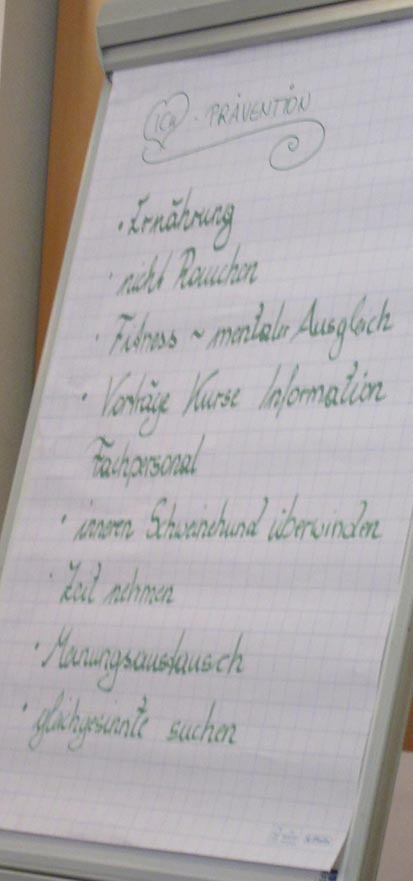 ICH - PRÄVENTION
• Ernährung
• nicht Rauchen
• Fitness ~ mentaler Ausgleich
• Vorträge Kurse Information
Fachpersonal
• inneren Schweinehund überwinden
• Zeit nehmen
• Meinungsaustausch
• gleichgesinnte suchen